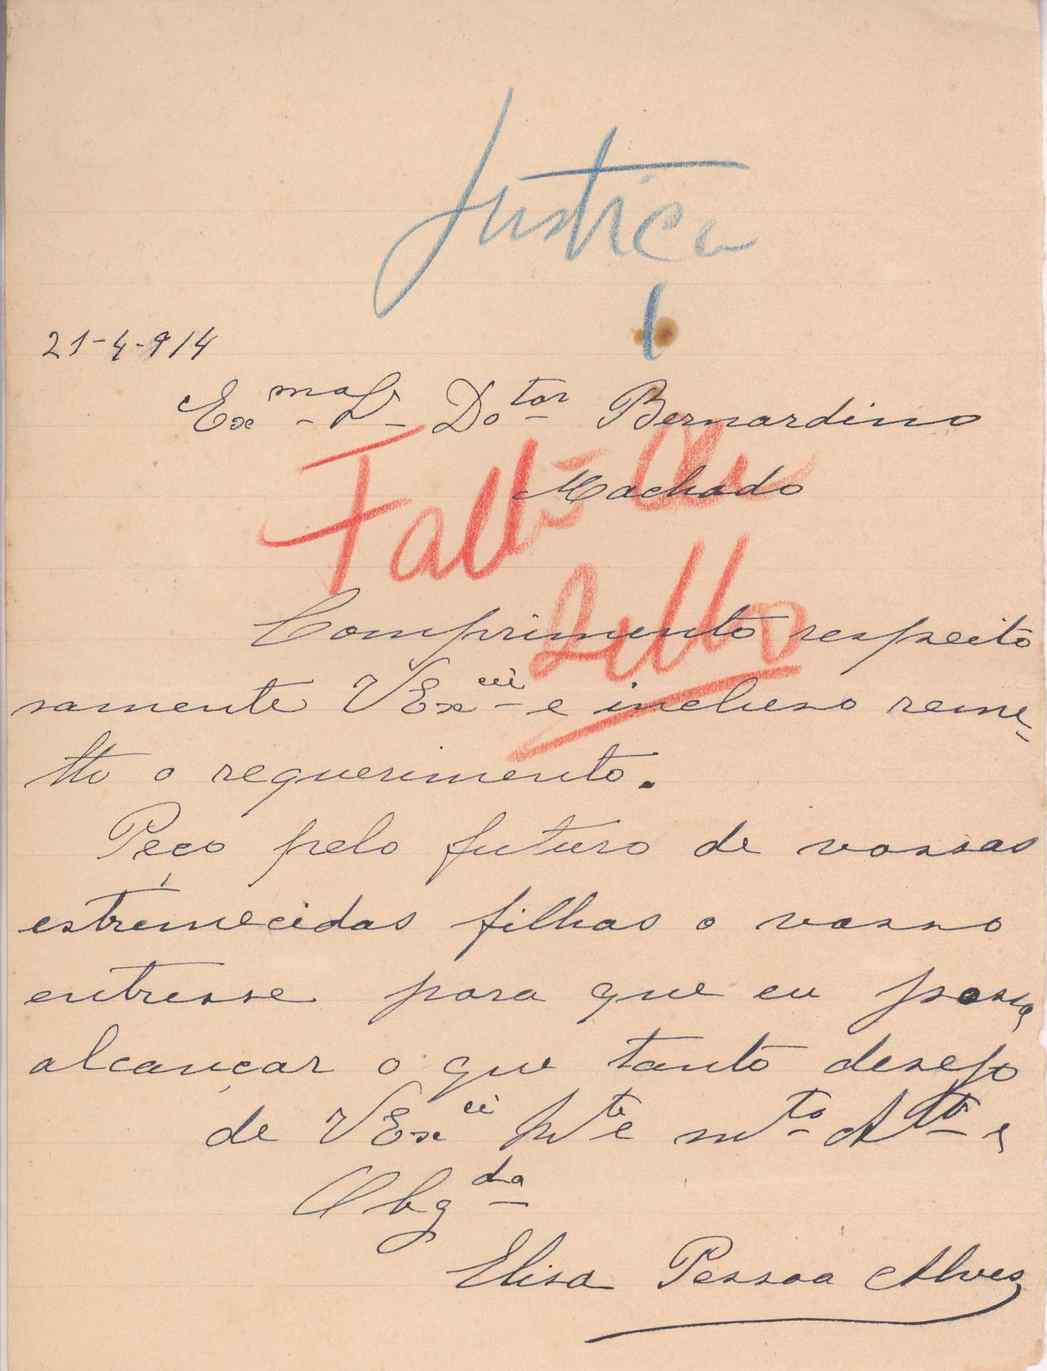 Justiça
1
21-4-914
Exmo Sr Dotor Bernardino
Machado
Comprimento respeito
samente VExcia e incluso reme-
tto o requerimento.
Peço pelo futuro de vossas
estremecidas filhas o vosso
entresse para que eu possa
alcançar o que tanto desejo
de VExcia
mto Atta e
Obgda
Elisa Pessoa Alves